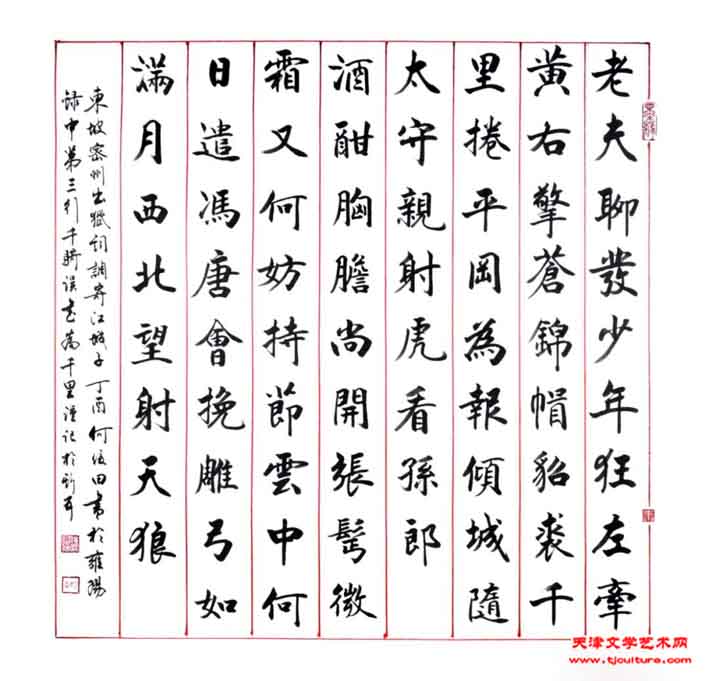 老夫聊發少年狂左牽
黃右擎蒼錦帽貂裘千
里捲平岡為報傾城隨
太守親射虎看孫郎
酒酣胸膽尚開張鬢微
霜又何妨持節雲中何
日遣馮唐會挽雕弓如
滿月西北望射天狼
東坡密州出獵詞調寄江城子丁酉何俊田書於雍陽
錄中第三行千騎誤書為千里謹記於
天津文学艺术网
www.tjculture.com